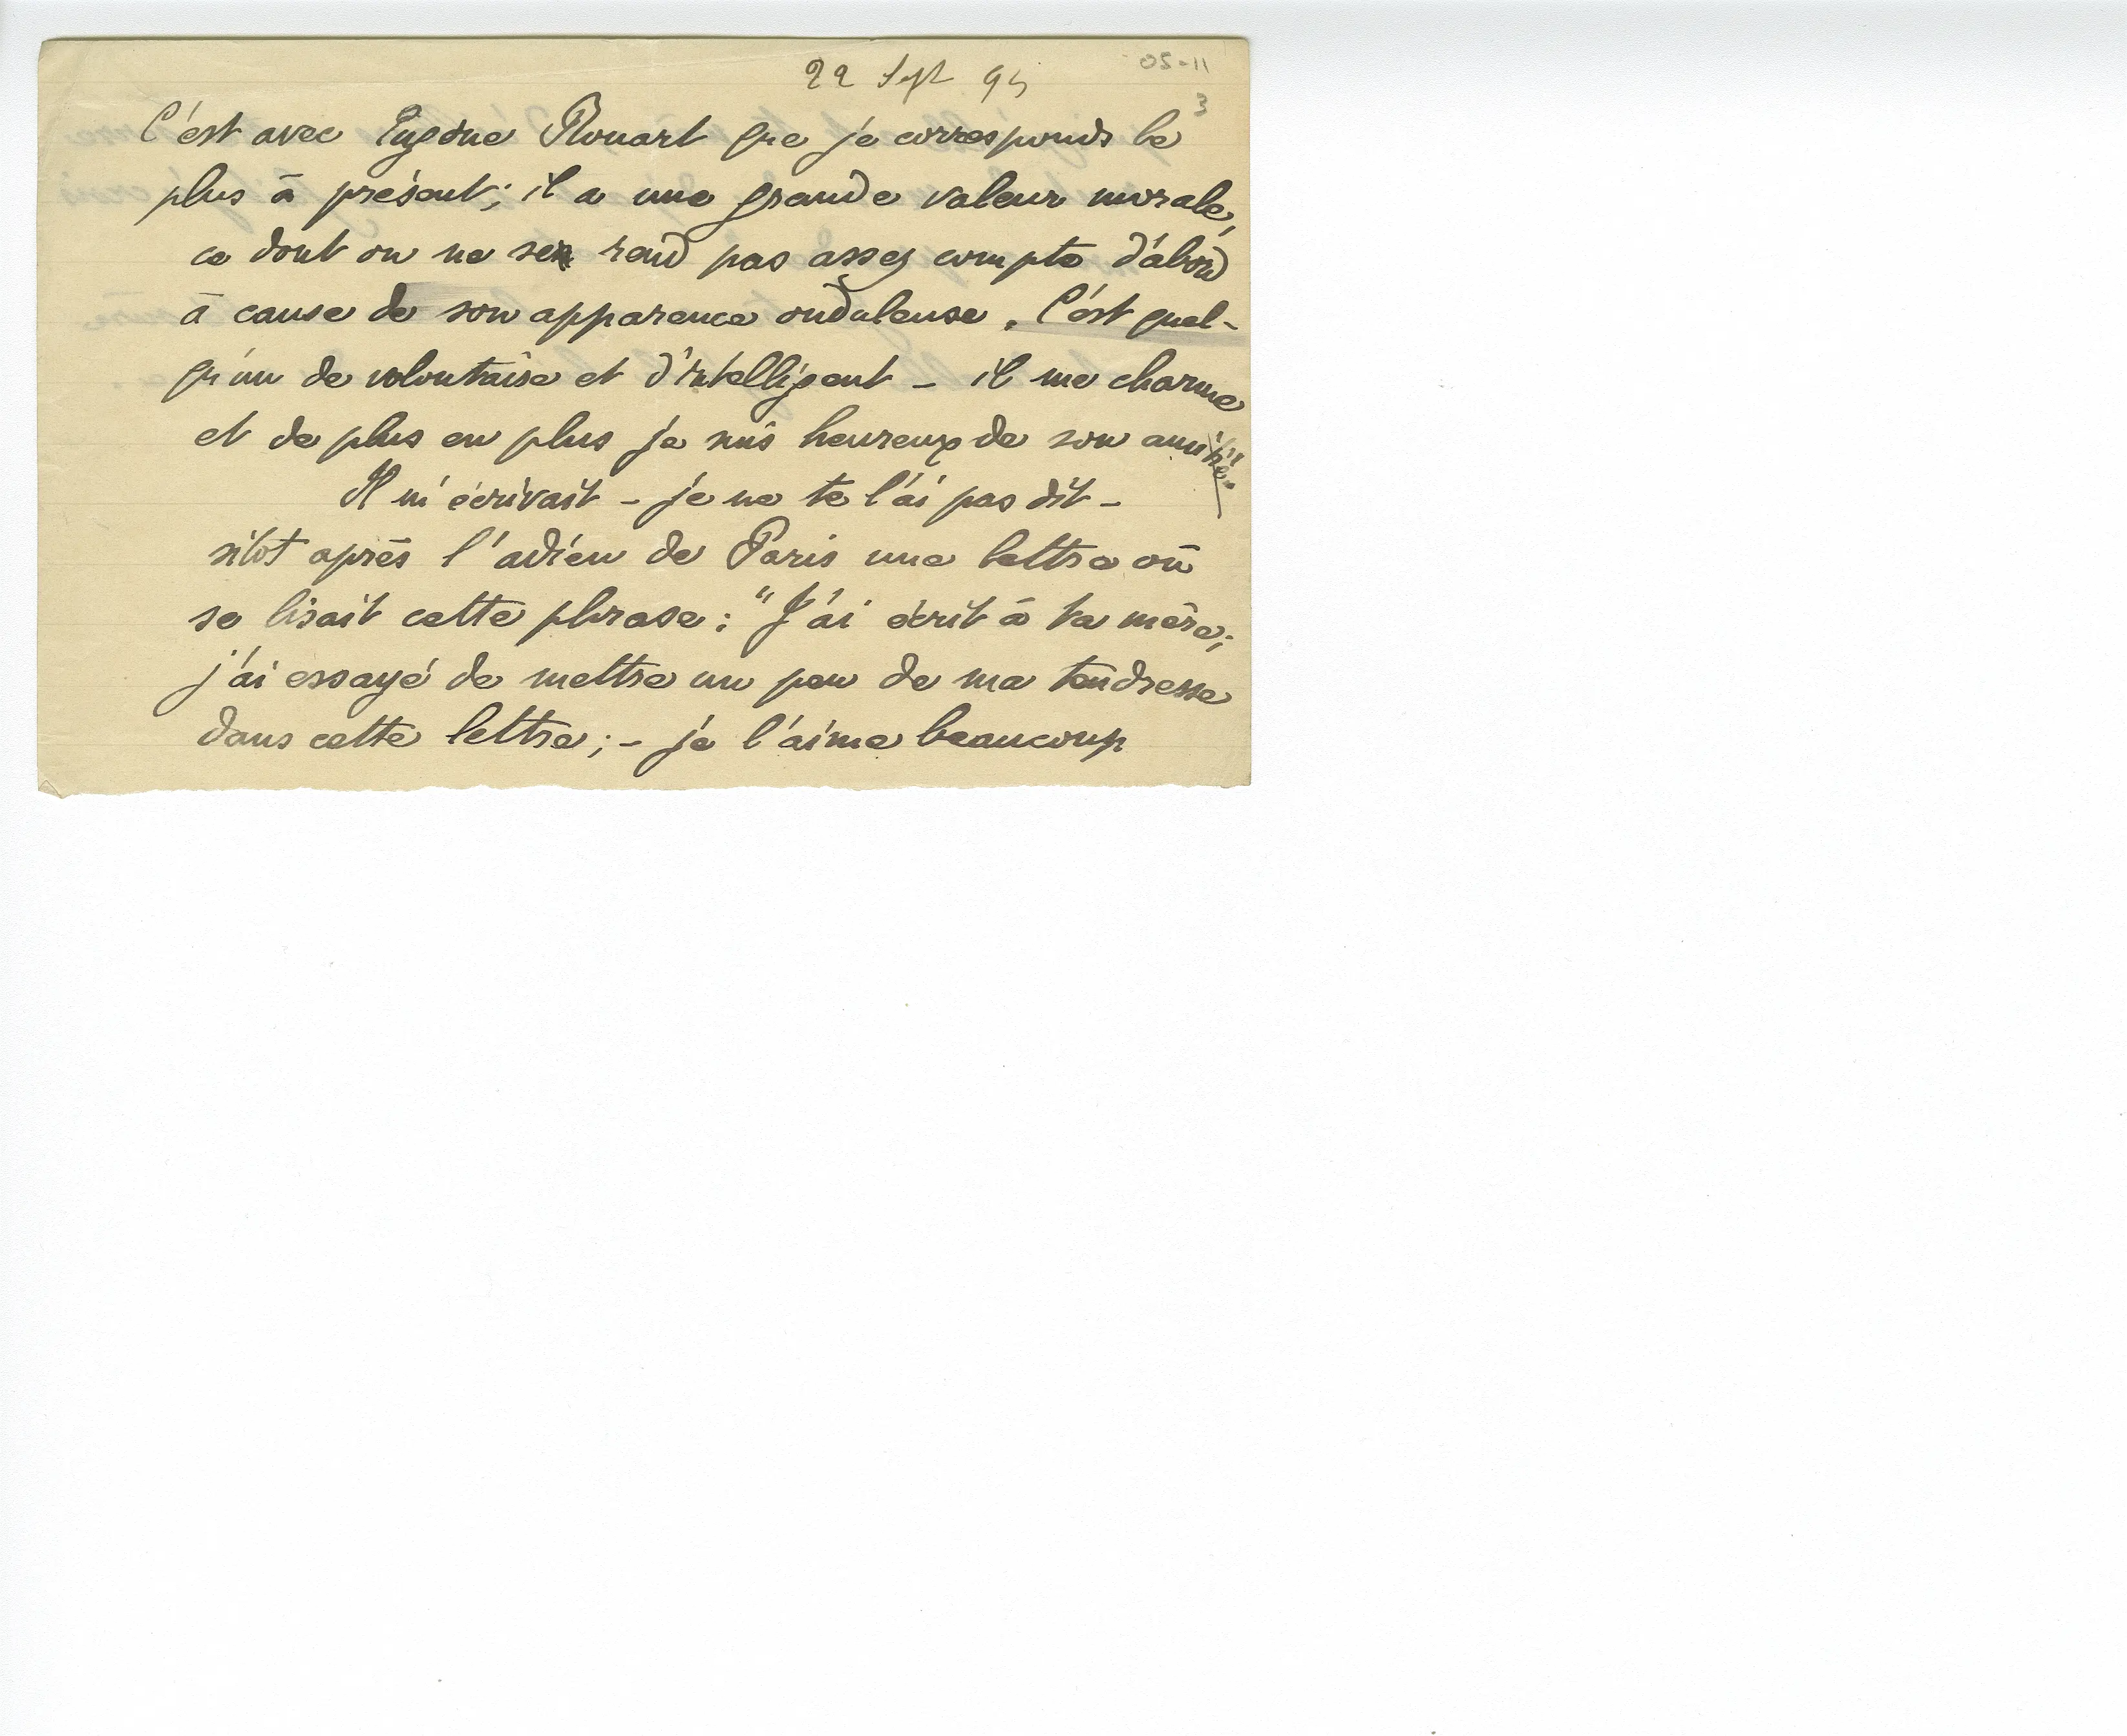 05-11
22 Sept 95
3
C'est avec Eugène Rouart que je corresponds le
plus à présent; il a une grande valeur morale,
ce dont on ne se rend pas assez compte d'abord
à cause de son apparence onduleuse. C'est quel-
qu'un de volontaire et d'intelligent - il me charme
et de plus en plus je suis heureux de son amitié.
Il m'écrivait - je ne te l'ai pas dit -
sitôt après l'adieu de Paris une lettre où
se lisait cette phrase: "J'ai écrit à ta mère;
j'ai essayé de mettre un peu de ma tendresse
dans cette lettre; - je l'aime beaucoup